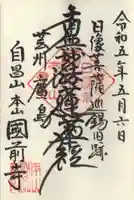 令和五年五月六日
日像菩薩
旧跡
南無妙法蓮華経
芸州 廣島
自昌山 本山 國前寺